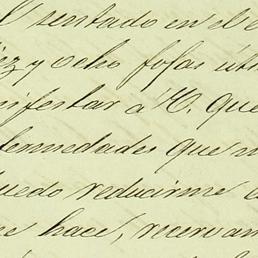 sentado en el e
ez y ocho fojas úti
nifestar á V. que
fermedades que m
uedo reducirme a
me hace, reservam